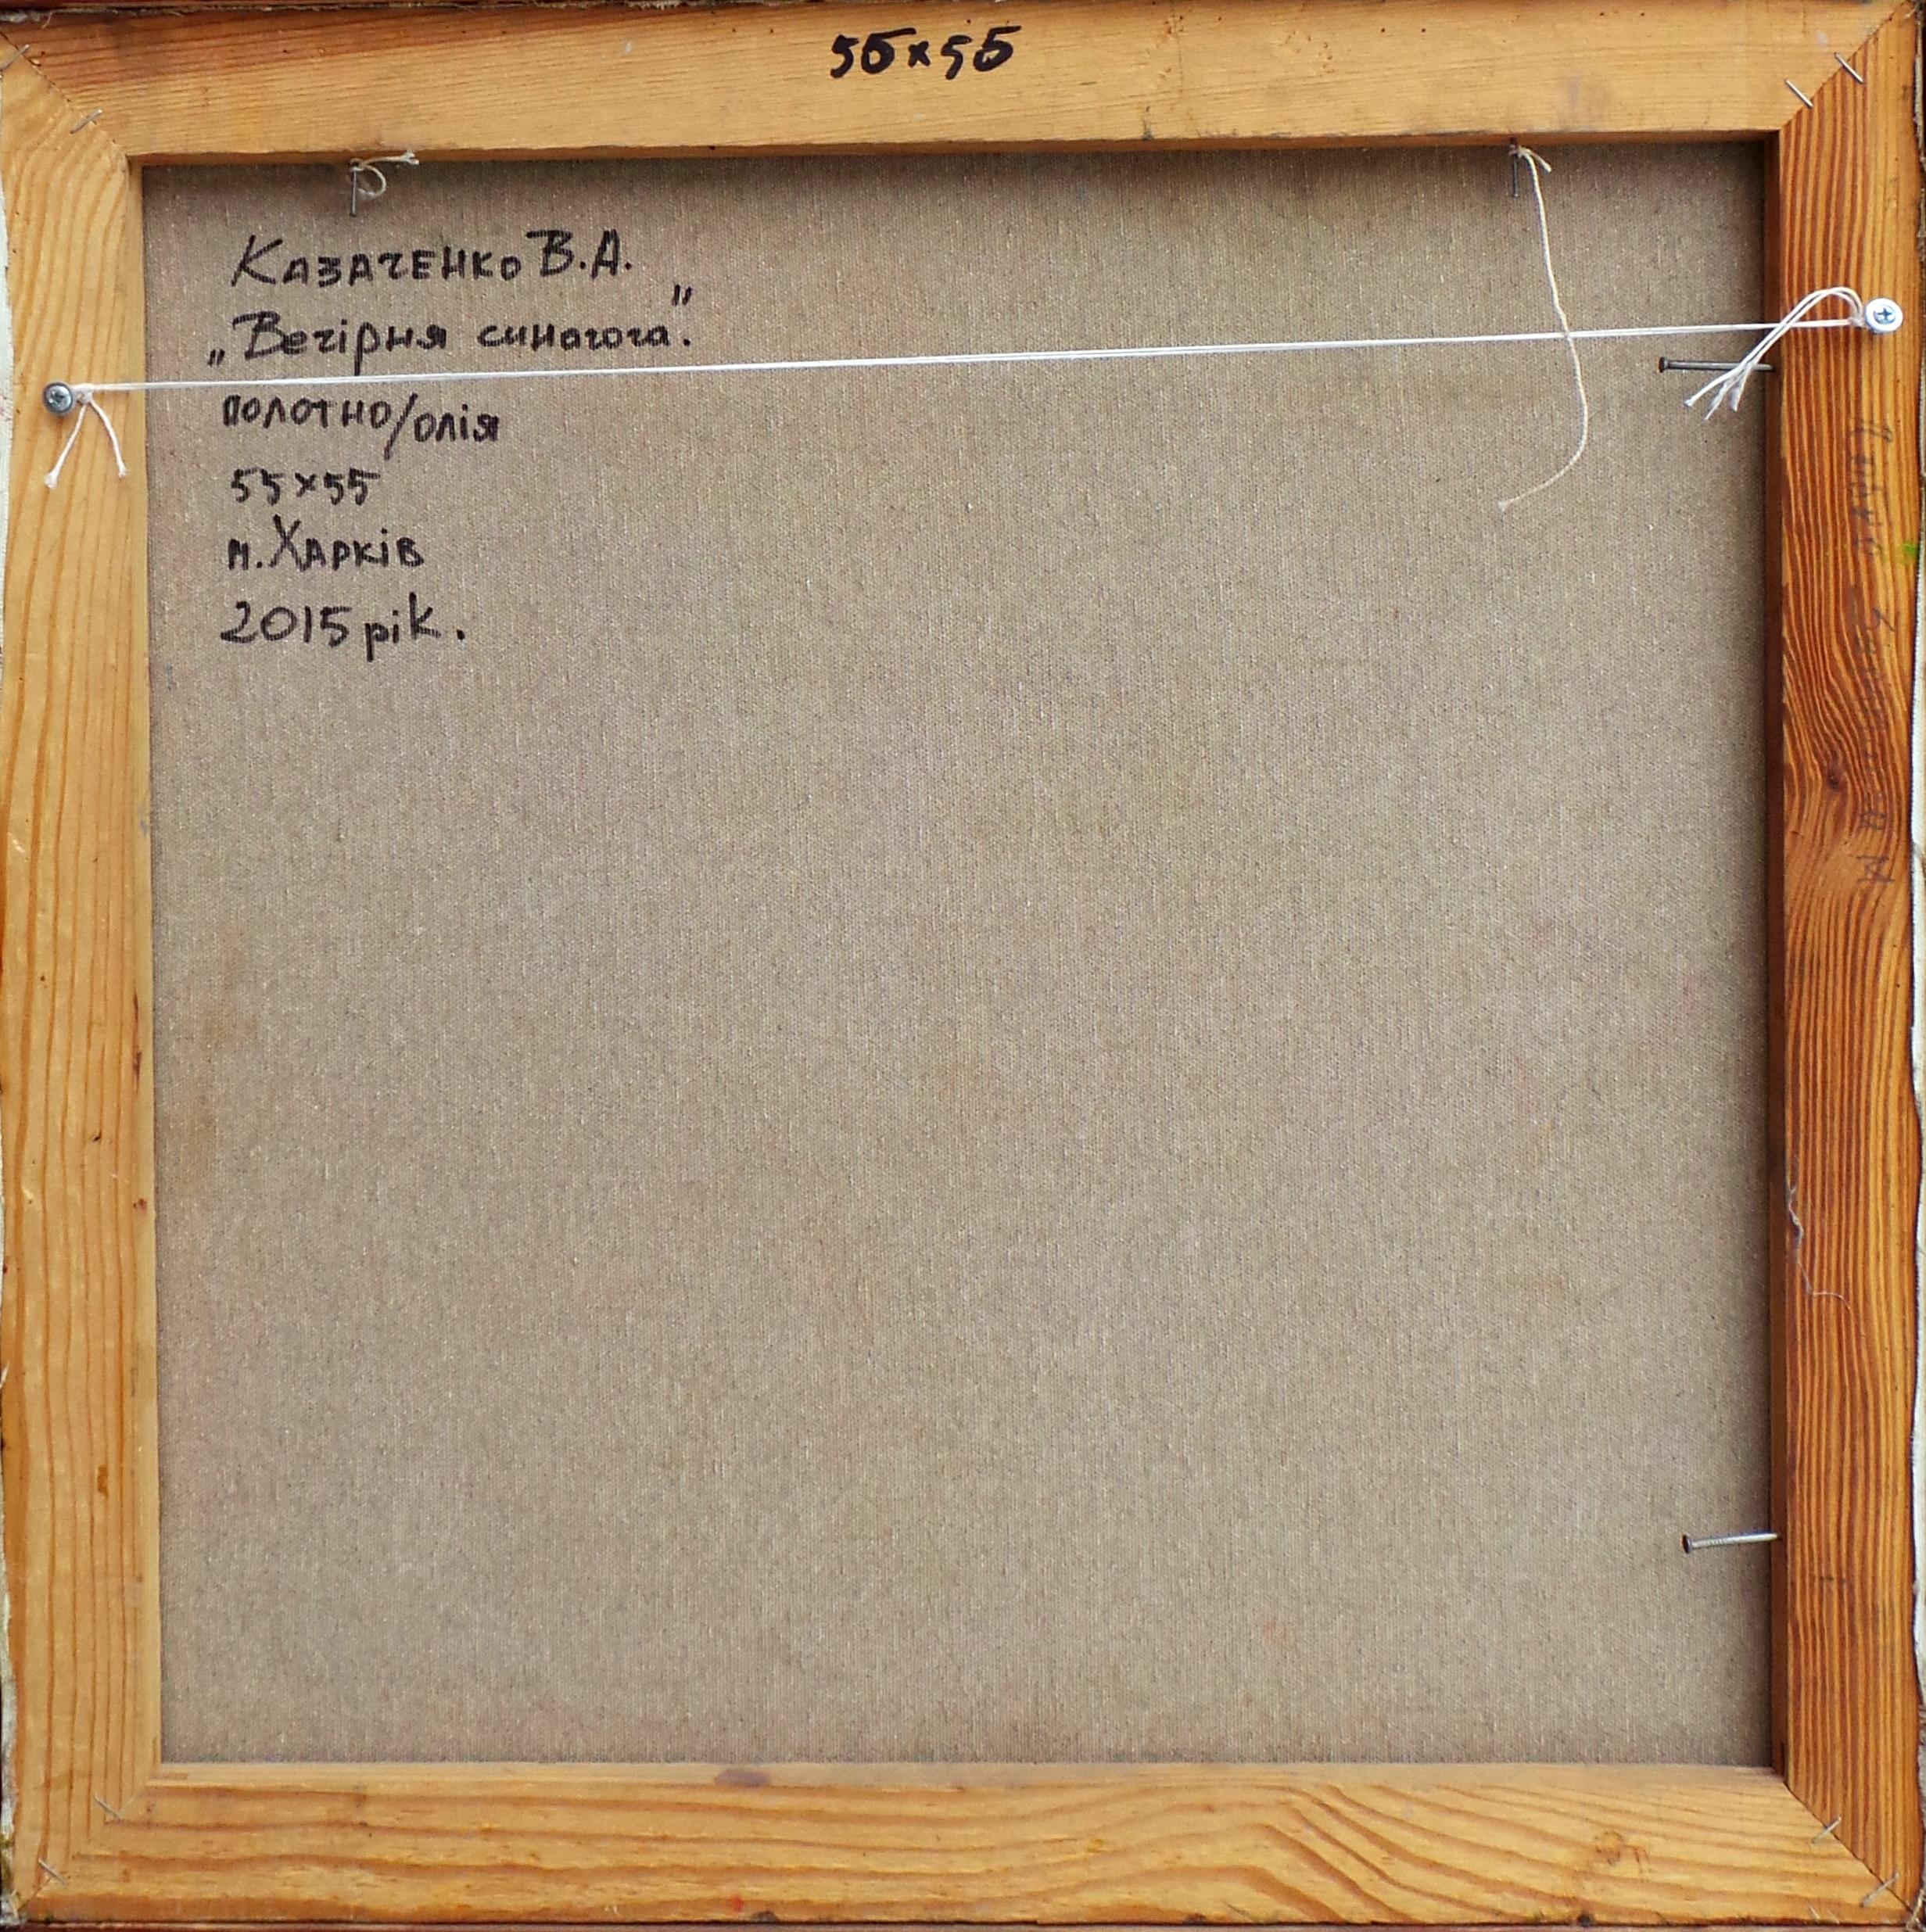 55×55
Казаченко В.А.
„Вечірня синагога".
полотно/олія
55×55
м. Харків
2015 рік.